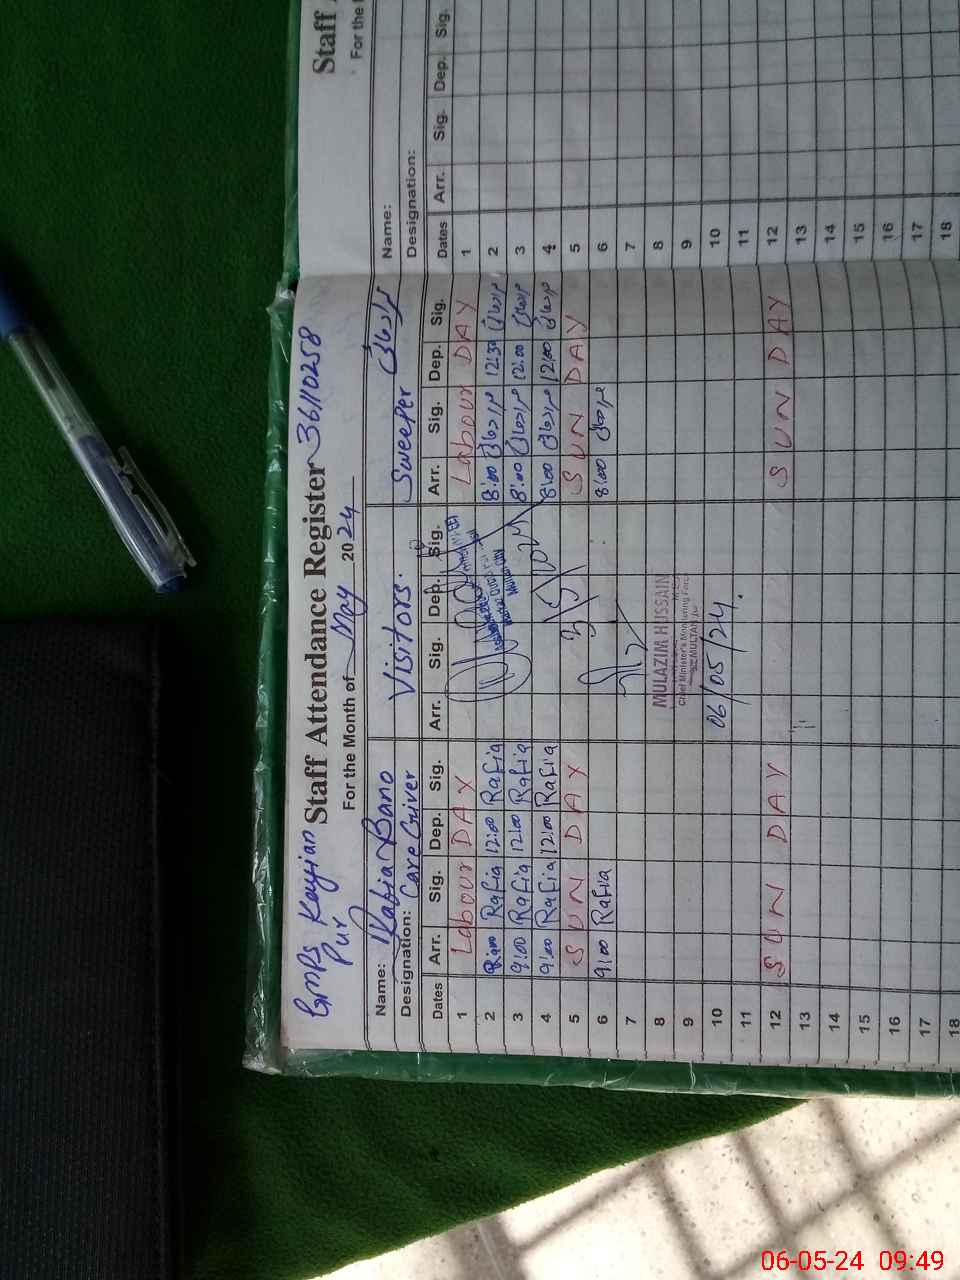 GMPS
Pur
Staff Attendance Register 36110258
For the Month of May 2024
Name: Rafia Bano
Visitors.
Sweeper
Designation: Care Giver
Dates Arr. Sig. Dep. Sig. Arr. Sig. Dep. Sig. Arr. Sig. Dep. Sig.
1 Labour DAY Labour DAY
2 9:00 Rafia 12:00 Rafia 8:00 12:30
3 9:00 Rafia 12:00 Rafia 8:00 12:00
4 9:00 Rafia 12:00 Rafia 8:00 12:00
5 SUN DAY SUN DAY
6 9:00 Rafia 8:00
7
8
9
10
11
12 SUN DAY SUN DAY
13
14
15
16
17
18
3/5/2024
MULAZIM HUSSAIN
Chief Minister's Monitoring Force
MULTAN
06/05/24.
Staff
For the
Name:
Designation:
Dates Arr. Sig. Dep. Sig.
1
2
3
4
5
6
7
8
9
10
11
12
13
14
15
16
17
18
06-05-24 09:49